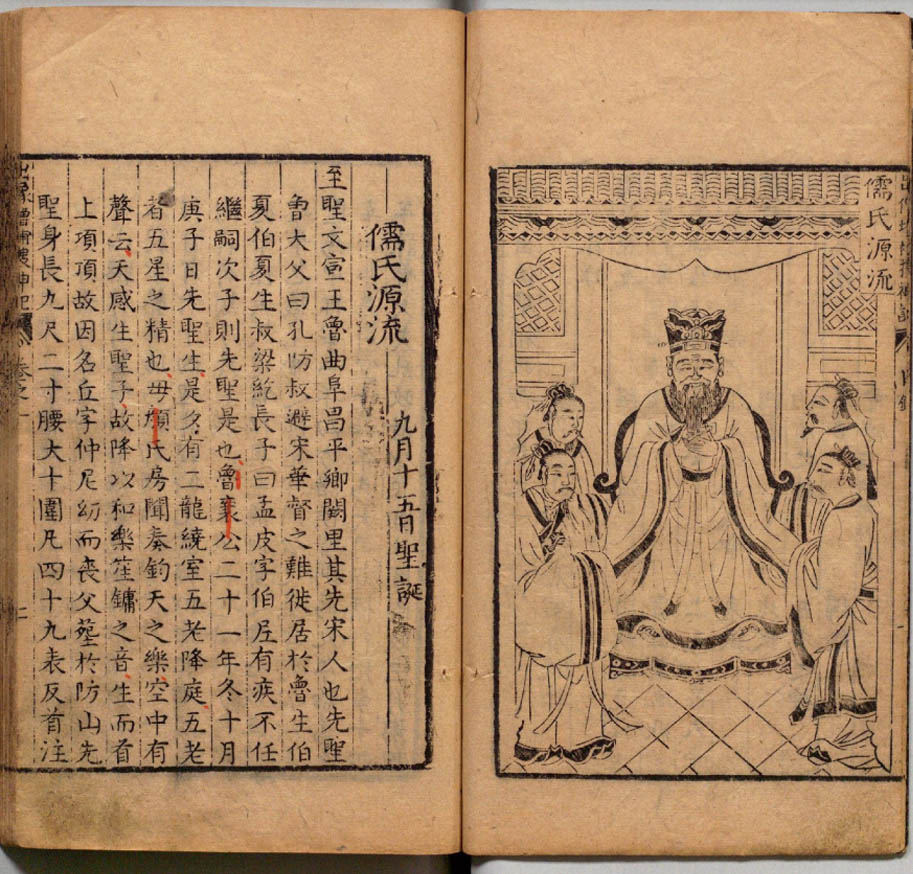 儒氏源流
儒氏源流
九月十五日聖誕
至聖文宣王魯曲阜昌平鄉闕里其先宋人也先聖
魯大父曰孔防叔避宋華督之難徙居於魯生伯
夏伯夏生叔梁紇長子曰孟皮字伯尼有疾不任
繼嗣次子則先聖是也魯襄公二十一年冬十月
庚子日先聖生是夕有二龍繞室五老降庭五老
者五星之精也母顏氏房聞奏鈞天之樂空中有
聲云天感生聖子故降以和樂笙鏞之音生而首
上項項故因名丘字仲尼幼而喪父葬於防山先
聖身長九尺二寸腰大十圍凡四十九表反首注